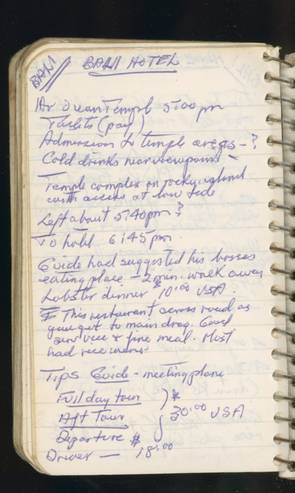 BALI
BALI HOTEL
Ar Ocean Temple 5:00 pm
Toilets (pay)
Admission to temple areas - ?
Cold drinks near viewpoint
Temple complex on rocky island
with access at low tide
Left about 5:40 pm ?
To hotel 6:45 pm
Guide had suggested his bosses
eating place - 2 min. walk away.
Lobster dinner $10.00 USA.
This restaurant across road as
you get to main drag. Good
service & fine meal. Most
had
TIPS Guide - meeting plane
Full day tour
Aft Tour 30.00 USA
Departure $
Driver — 18.00